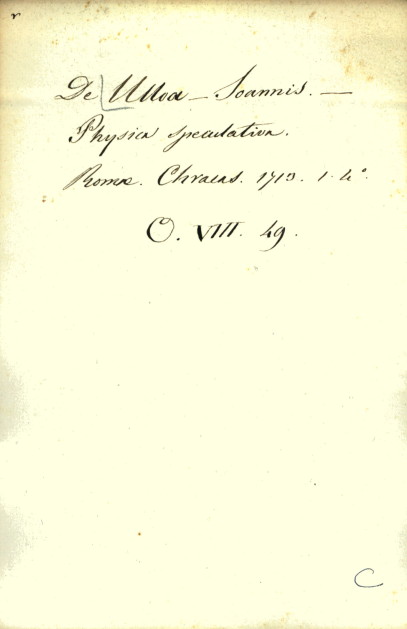 r
De Ulloa – Joannis. –
Physica speculativa.
Romæ. Chracas. 1713. 1. 4°.
O. VIII. 49.
C